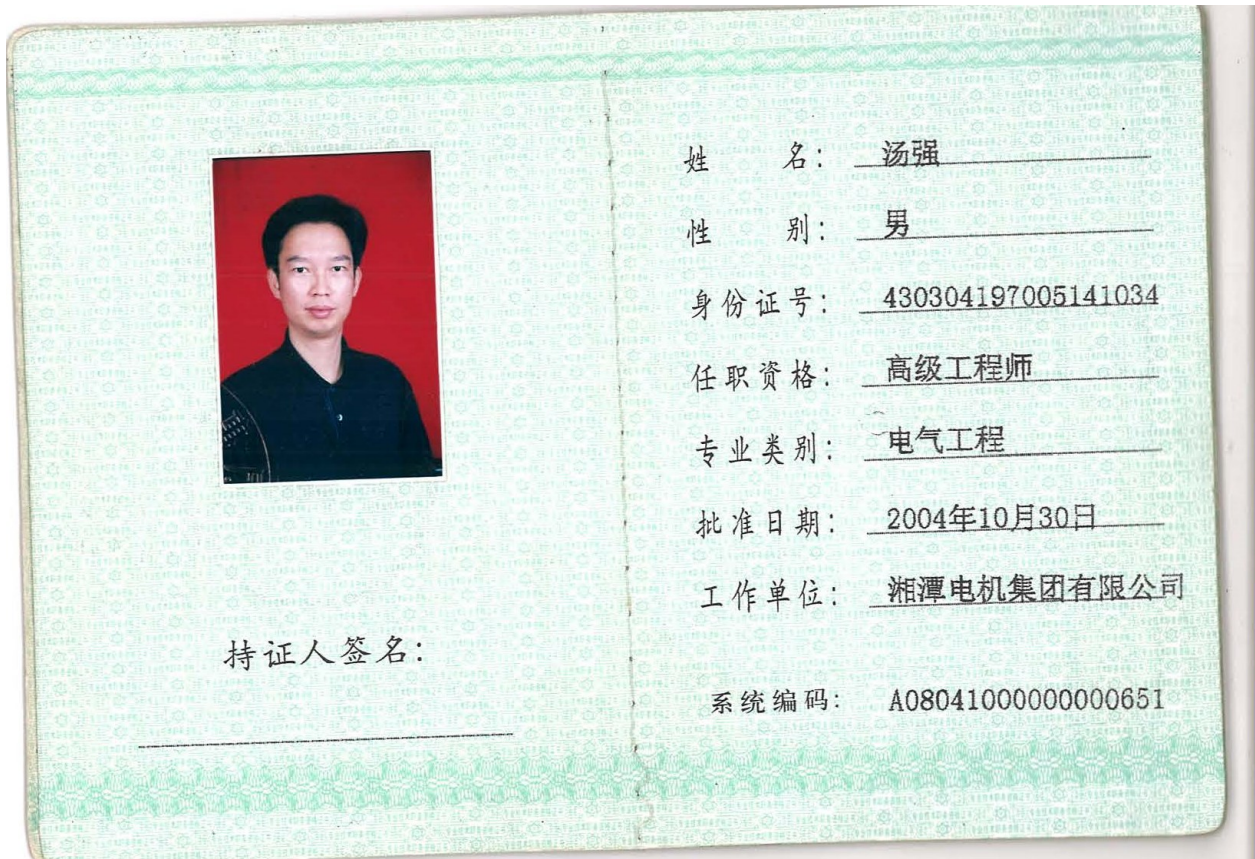 姓名：汤强
性别：男
身份证号：430304197005141034
任职资格：高级工程师
专业类别：电气工程
批准日期：2004年10月30日
工作单位：湘潭电机集团有限公司
持证人签名：
系统编码：A08041000000000651